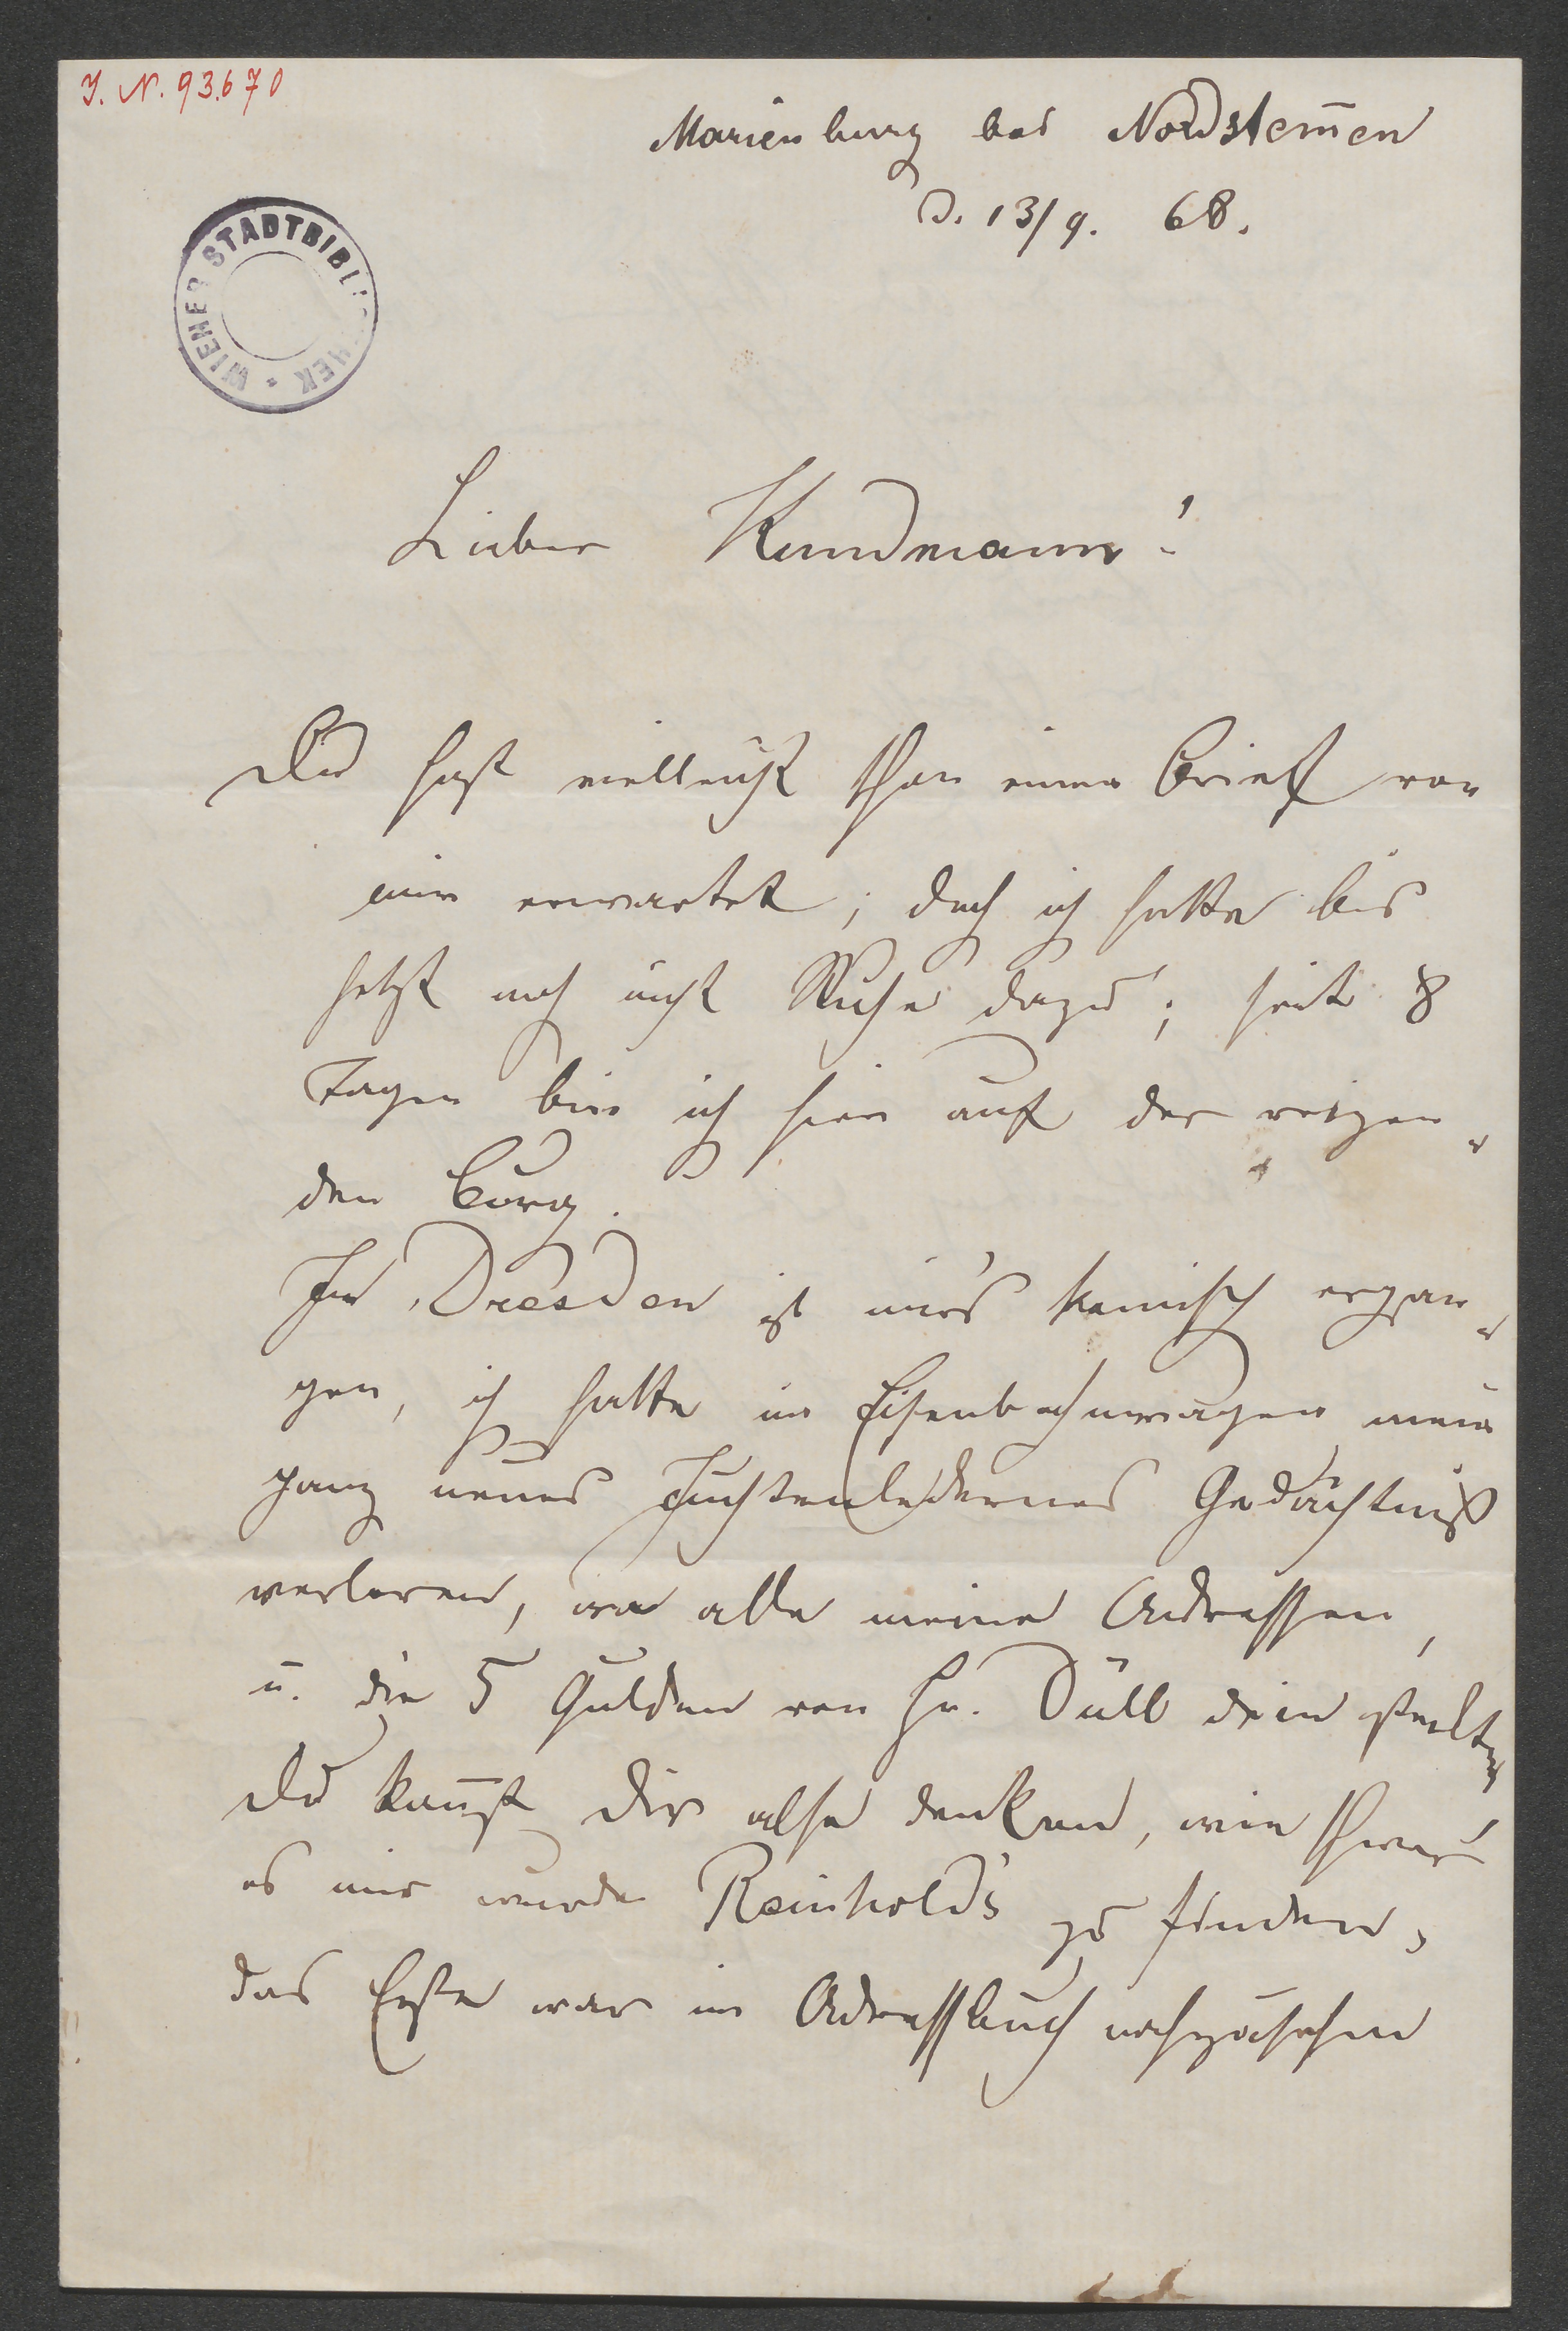 J. N. 93.670
Marienburg bei Nordstem̄en
d. 13/9. 68.
WIENER STADTBIBLIOTHEK
Lieber Kundmann!
Du hast vielleicht schon einen Brief von
mir erwartet; doch ich hatte bis
jetzt noch nicht Ruhe dazu; seit 8
Tagen bin ich hier auf der reizen„
den Burg.
In Dresden ist mir's komisch ergan„
gen, ich hatte im Eisenbahnwagen mein
ganz neues Juchtenledernes Gedächtniß
verloren, wo alle meine Adressen,
u. die 5 Gulden von Hr. Düll drin steckten
Du kan̄st Dir also denken, wie schwer
es mir wurde Reinhold's zu finden,
das Erste war im Adressbuch nachzusehen